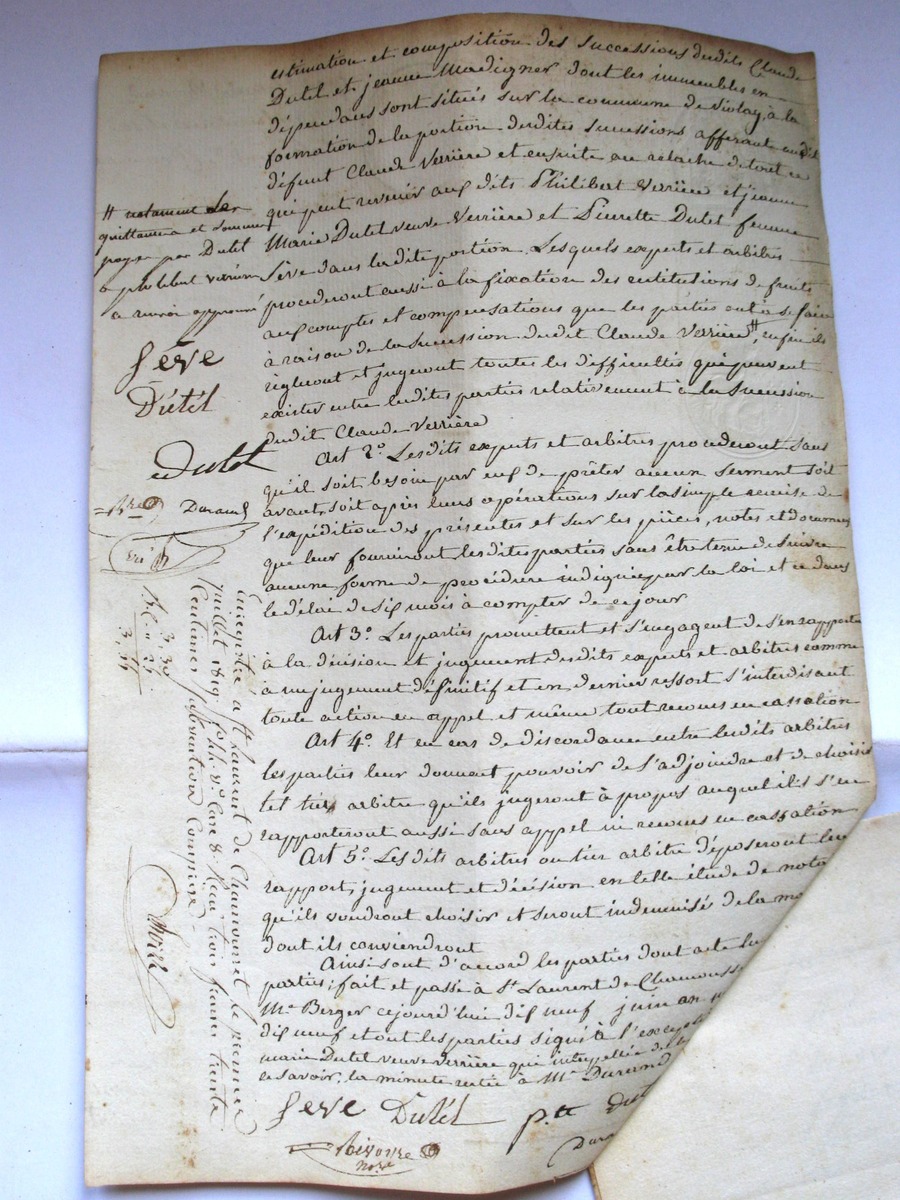 estimation et composition des successions desdits Claude
Dutel et jeanne Madigner dont les immeubles en
dépendans sont situés sur la commune de Violay, à la
formation de la portion desdites successions afferant audit
défunt Claude Verrière et ensuite au relache de tout ce
qui peut revenir aux dits Philibert Verrière et jeanne
Marie Dutel veuve Verrière et Pierrette Dutel femme
Sève dans la dite portion. Lesquels experts et arbitres
procederont aussi à la fixation des restitutions de fruits
aux comptes et compensations que les parties ont à se faire
à raison de la succession dudit Claude Verrière #, enfin ils
règleront et jugeront toutes les difficultés qui peuvent
exister entre lesdites parties relativement à la succession
dudit Claude Verrière
Art 2º. Lesdits experts et arbitres procederont sans
qu'il soit besoin par eux de prêter aucun serment soit
avant, soit après leurs opérations sur la simple remise de
l'expédition des présentes et sur les pièces, notes et documens
que leur fourniront lesdites parties sans être tenu de suivre
aucune forme de procédure indiquée par la loi et ce dans
le délai de six mois à compter de ce jour
Art 3º. Les parties promettent et s'engagent de s'en rapporter
à la décision et jugement desdits experts et arbitres comme
à un jugement définitif et en dernier ressort s'interdisant
toute action en appel et même tout recours en cassation
Art 4º. Et en cas de discordance entre lesdits arbitres
les parties leur donnent pouvoir de s'adjoindre et de choisir
tel tiers arbitre qu'ils jugeront à propos auquel ils s'en
rapporteront aussi sans appel ni recours en cassation
Art 5º. Lesdits arbitres ou tier arbitre déposeront leur
rapport, jugement et décision en telle étude de nota
qu'ils voudront choisir et seront indemnisés de la ma
dont ils conviendront
Ainsi sont d'accord les parties dont acte lu
parties; fait et passé à St Laurent de Chamouss
Me Berger cejourd'hui dix neuf juin an
dix neuf et ont les parties signé à l'excep
marie Dutel veuve verrière qui interpellée de
le savoir, la minute restée à Me Durand
Seve Dutel p.tte Dut
Dura
# notament les
quittances et sommes
payer par Dutel
a philibert verrière
Seve
Dutel
Dutel
Durand
Enregistré à St Laurent de Chamousset le premier
juillet 1819, fol. Vº Case 8. Reçu trois francs trente
Centimes subvention Comprise
3, 30
3,